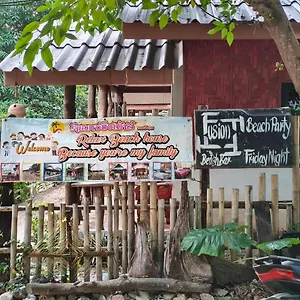 Welcome
Relax Beach house
Because you're my family
Fusion
Beach Bar
Beach Party
Friday Night